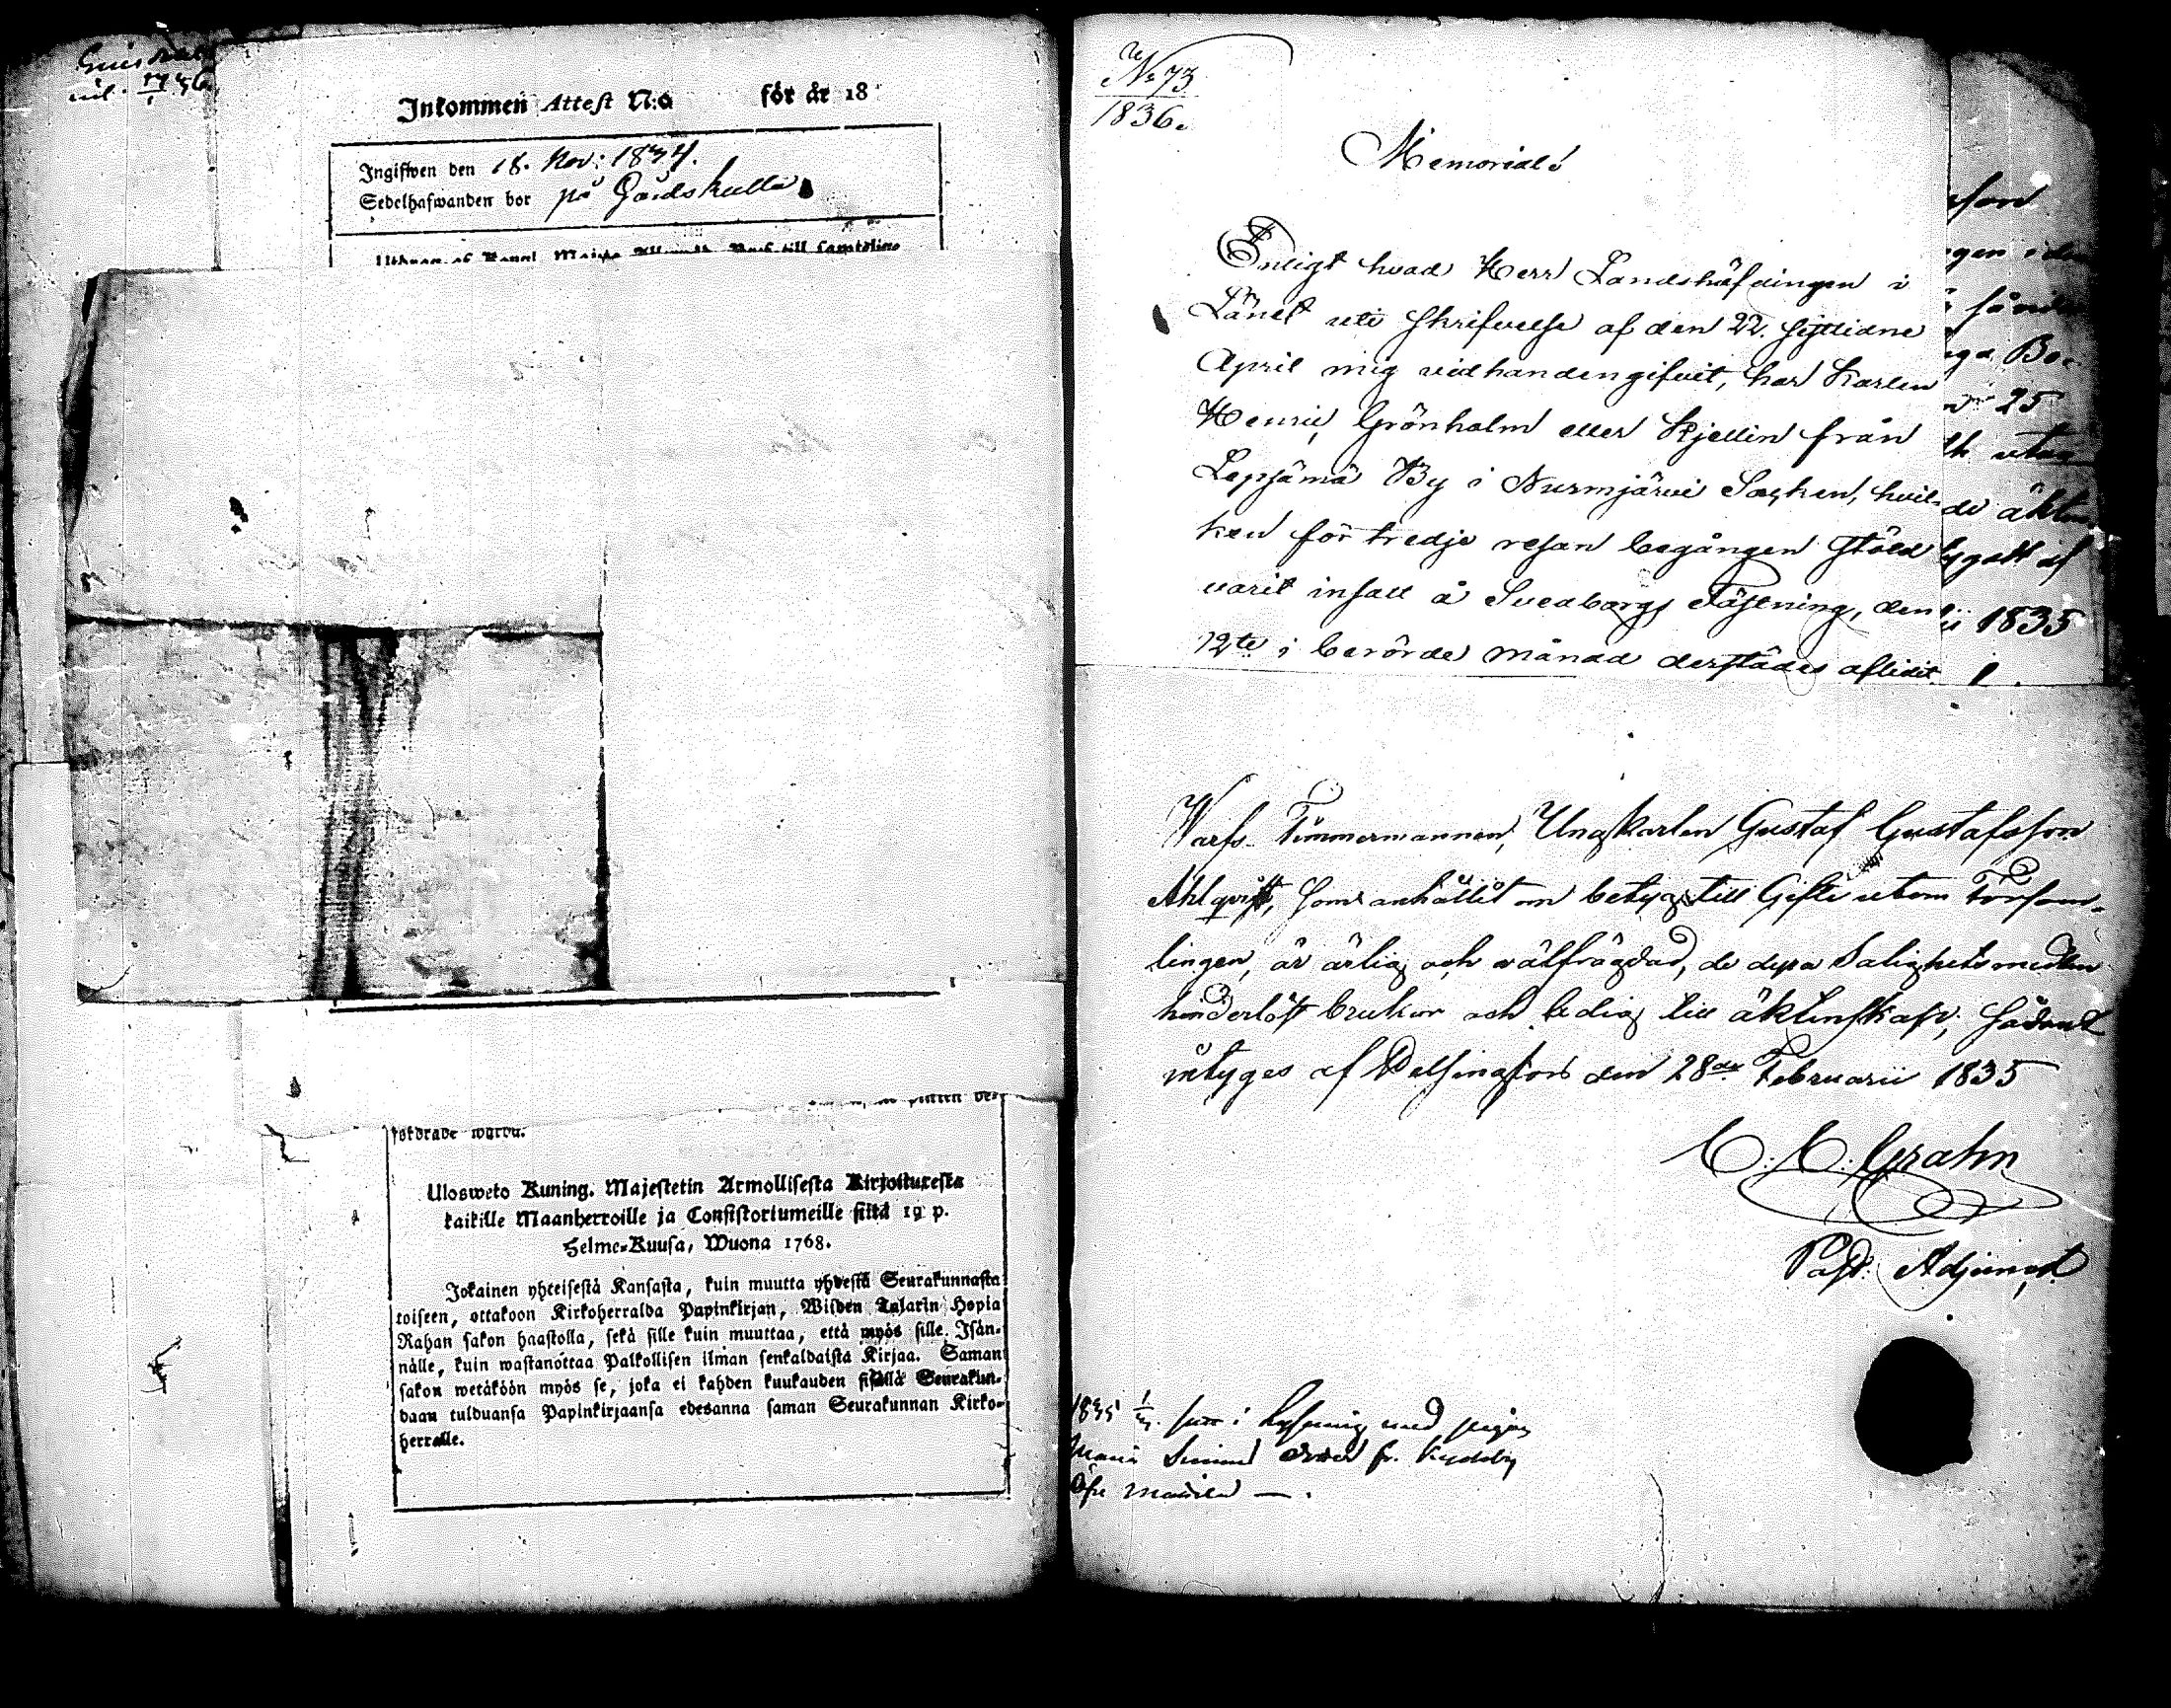 Inkommen Attest N:o för år 18
Ingifwen den 18. Nov: 1834.
Sedelhafwanden bor på Gårdskulla
fordrade warda.
Ulosweto Kuning. Majestetin Armollisesta Kirjoituxesta
kaikille Maanherroille ja Consistoriumeille siitä 19 p.
Helme-Kuusa, Wuona 1768.
Jokainen yhteisestä Kansasta, kuin muutta yhdestä Seurakunnasta
toiseen, ottakoon Kirkoherralda Papinkirjan, Wisden Talarin Hopia
Rahan sakon haastolla, sekä sille kuin muuttaa, että myös sille Isän-
nälle, kuin wastanottaa Palkollisen ilman senkaldaista Kirjaa. Saman
sakon wetäköön myös se, joka ei kahden kuukauden sisällä Seurakun-
daan tulduansa Papinkirjaansa edesanna saman Seurakunnan Kirko-
herralle.
No 73
1836.
Memorial
Enligt hvad Herr Landshöfdingen i
Länet uti skrifvelse af den 22. sistlidne
April mig vidhandengifvit, har Karlen
Henric Grönholm eller Kjellin från
Lepsämä By i Nurmjärvi Socken, hvil-
ken för tredje resan begången stöld
varit insatt å Sveaborgs Fästning, den
12te i berörde månad derstädes aflidit.
25
1835
Warfs Timmermannen, Ungkarlen Gustaf Gustafsson
Ahlqvist, som anhållit om betyg till Gifte utom Försam-
lingen, är ärlig och välfrägdad, de dyra Salighetsmedlen
hinderlöst brukar och ledig till äktenskap; sådant
intyges af Helsingfors den 28de Februarii 1835
C. C. Grahn
Past. Adjunct.
1835 i lysning med pigan
Maria